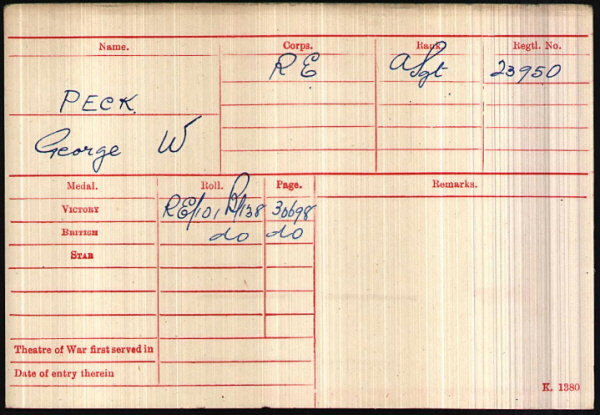 Name. Corps. Rank. Regtl. No.
R E A Sgt 23950
PECK.
George W
Medal. Roll. Page. Remarks.
VICTORY RE/101 B/138 30698
BRITISH do do
STAR
Theatre of War first served in
Date of entry therein
K. 1380